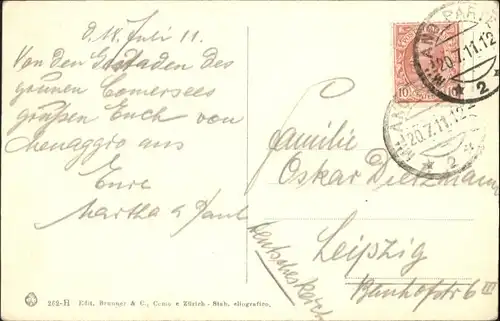 d. 18. Juli 11.
Von den Gestaden des
grünen Comersees
grüßen Euch von
Menaggio aus
Eure
Martha & Paul
Familie
Oskar Dietzmann
Leipzig
Bahnhofstr. 6 III
Deutsches Reich
MILANO PARTE
20.7.11.12
* 2 *
MILANO
20.7.11.12
* 2 *
10
10
262-H Edit. Brunner & C., Como e Zürich - Stab. eliografico.